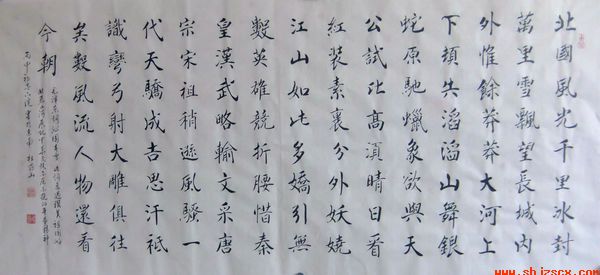 北國風光千里冰封
萬里雪飄望長城内
外惟餘莽莽大河上
下頓失滔滔山舞銀
蛇原馳蠟象欲與天
公試比高須晴日看
紅裝素裹分外妖嬈
江山如此多嬌引無
數英雄競折腰惜秦
皇漢武略輸文采唐
宗宋祖稍遜風騷一
代天驕成吉思汗祗
識彎弓射大雕俱往
矣數風流人物還看
今朝
毛澤東詞沁園春雪
www.shjzscx.com